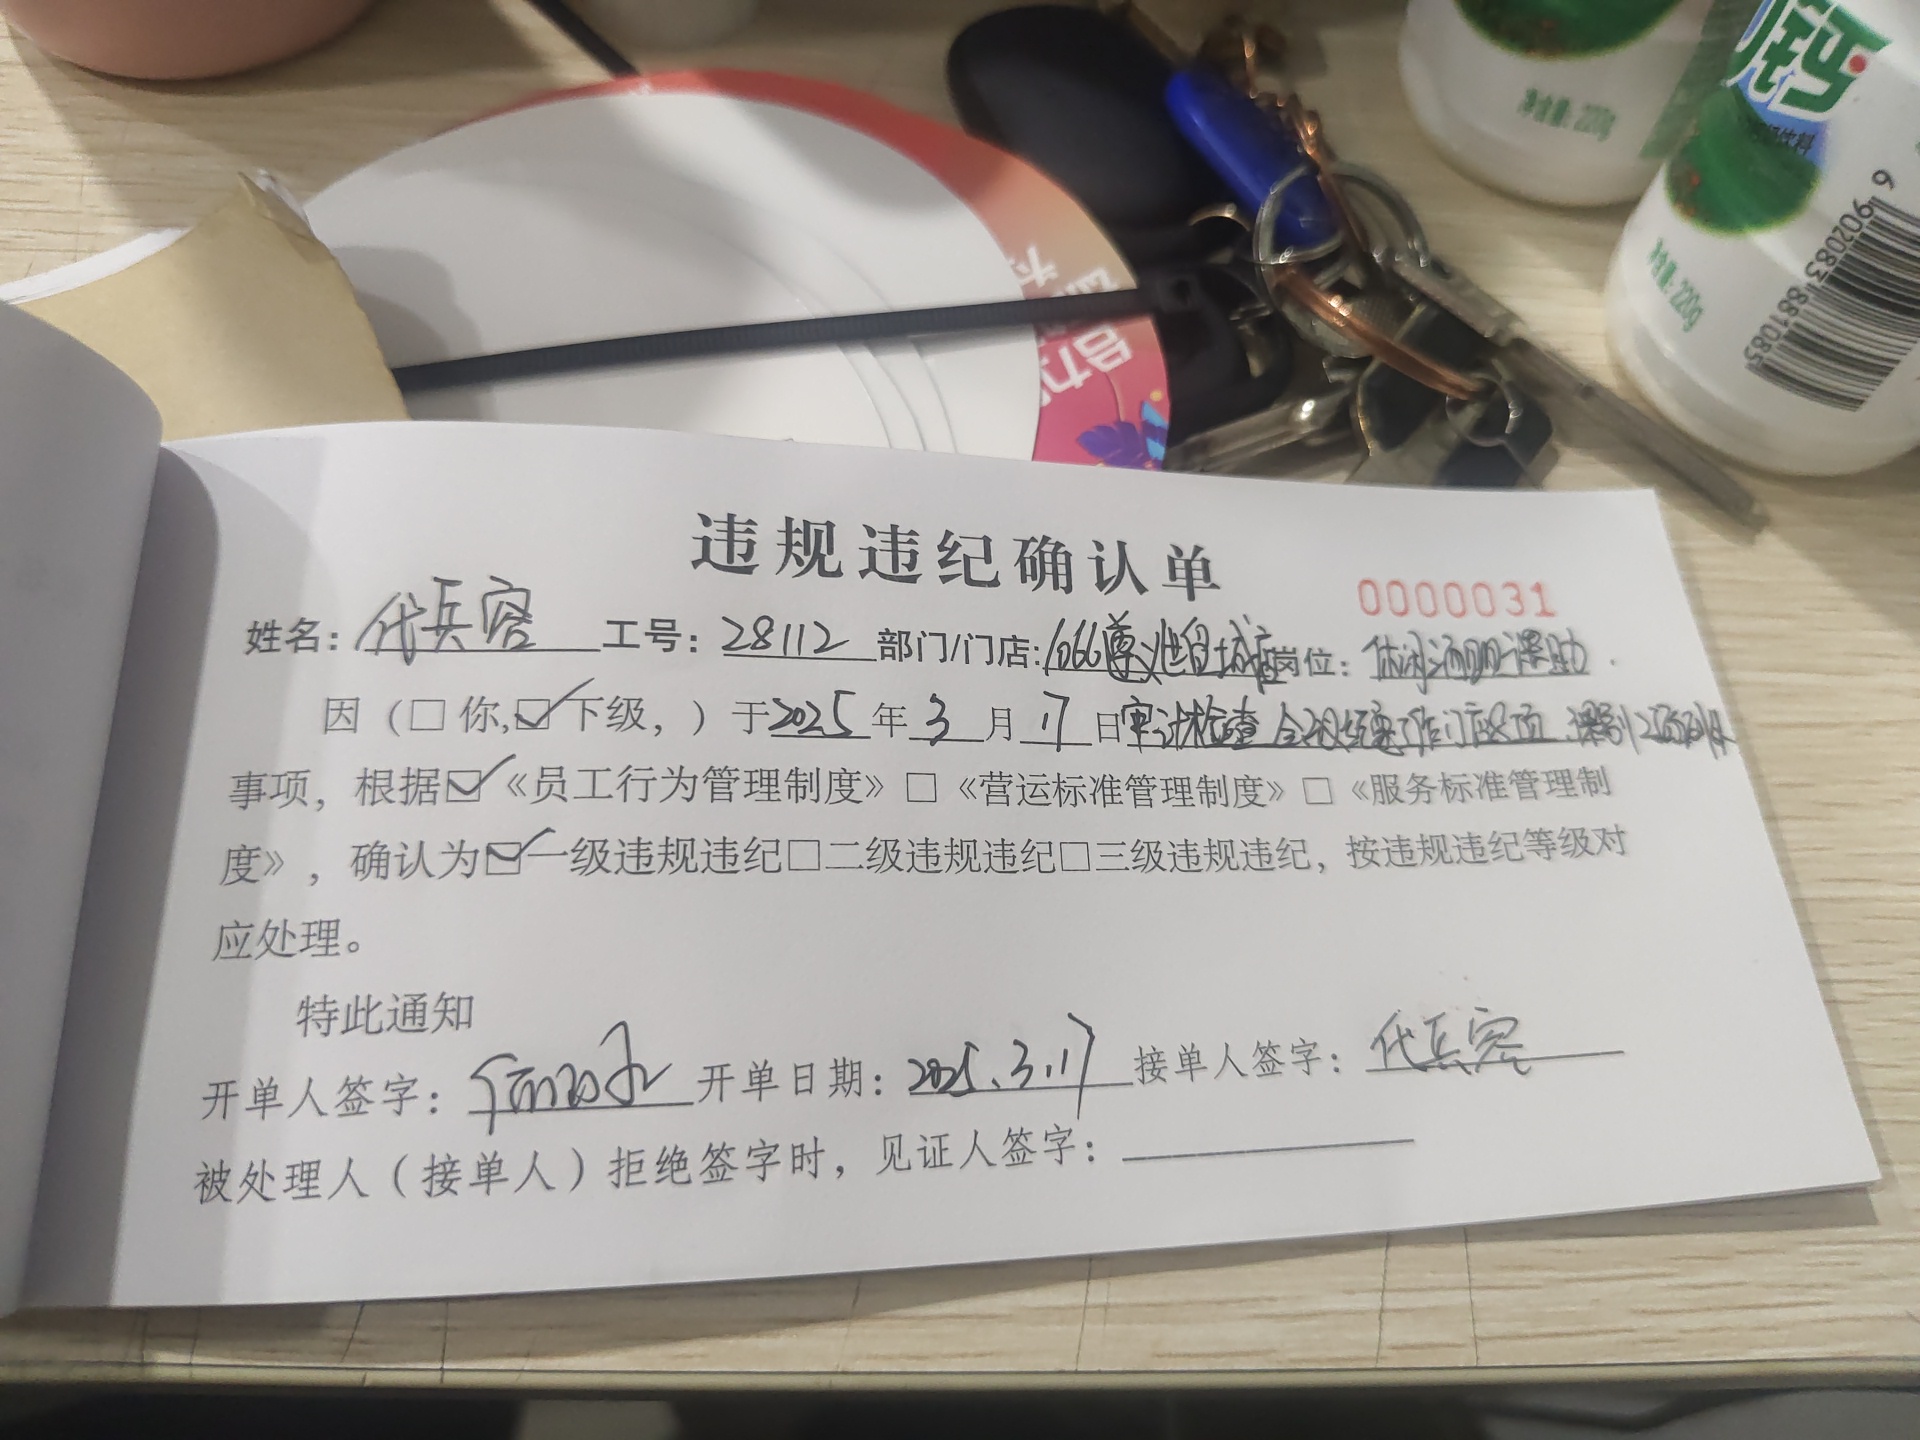 钙
净含量: 220g
净含量: 220g
6 902083 881085
违规违纪确认单
0000031
姓名: 代兵容 工号: 28112 部门/门店: 岗位: 休闲课助
因(□ 你,☑下级, ) 于2025年3月17日审计检查
事项, 根据☑《员工行为管理制度》□《营运标准管理制度》□《服务标准管理制
度》, 确认为☑一级违规违纪□二级违规违纪□三级违规违纪, 按违规违纪等级对
应处理。
特此通知
开单人签字: 开单日期: 2025.3.17 接单人签字: 代兵容
被处理人(接单人)拒绝签字时, 见证人签字: